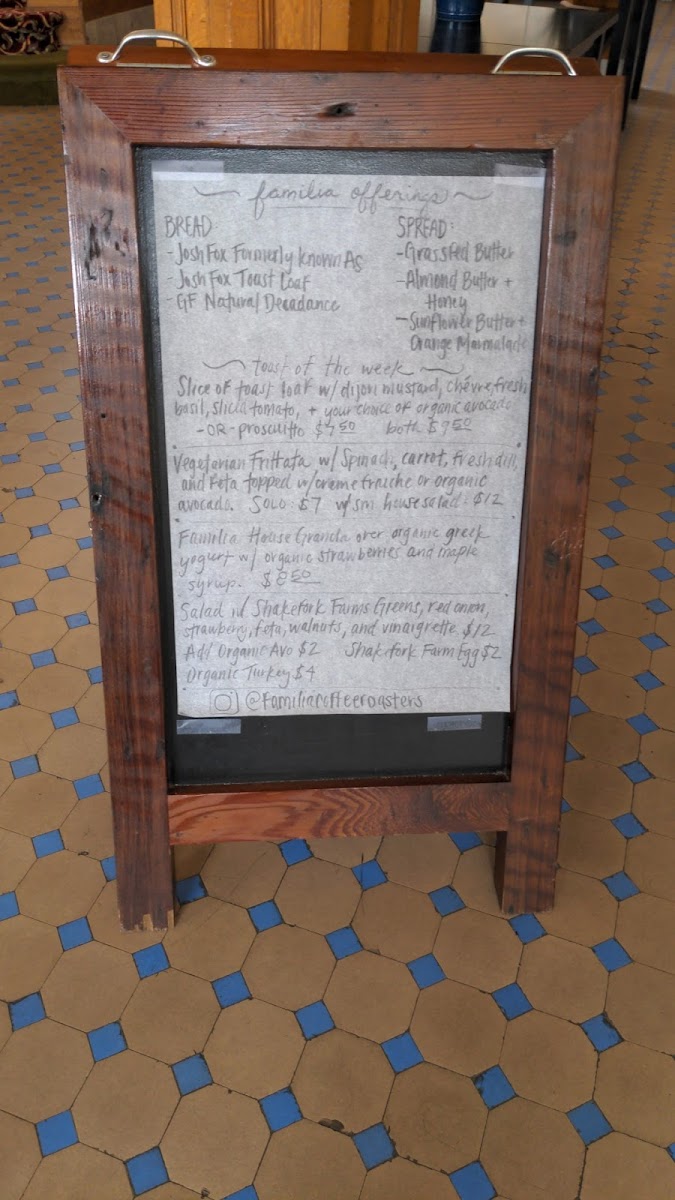 familia offerings
BREAD
- Josh Fox Formerly Known As
- Josh Fox Toast Loaf
- GF Natural Decadance
SPREAD:
- Grassfed Butter
- Almond Butter +
Honey
- Sunflower Butter +
Orange Marmalade
toast of the week
Slice of toast loaf w/ dijon mustard, chévre, fresh
basil, slicia tomato, + your choice of organic avocado
-OR- prosciutto $7.50 both $9.50
Vegetarian Frittata w/ Spinach, carrot, fresh dill,
and Feta topped w/ créme fraiche or organic
avocado. Solo: $7 w/ sm house salad: $12
Familia House Granola over organic greek
yogurt w/ organic strawberries and maple
syrup. $8.50
Salad w/ Shakefork Farms Greens, red onion,
strawberry, feta, walnuts, and vinaigrette. $12
Add Organic Avo $2 Shakefork Farm Egg $2
Organic Turkey $4
@Familiacoffeeroasters